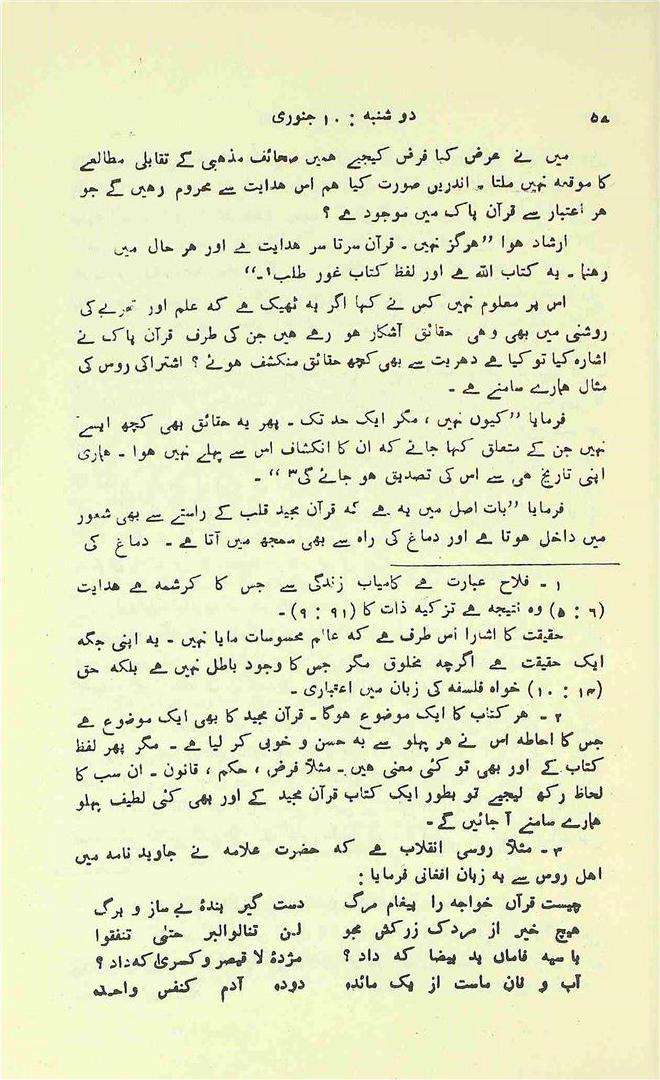 ۵۸ دو شنبه : ۱۰ جنوری
میں نے عرض کیا فرض کیجیے ہمیں صحائف مذہبی کے تقابلی مطالعے
کا موقعہ نہیں ملتا ۔ اندریں صورت کیا ہم اس ہدایت سے محروم رہیں گے جو
ہر اعتبار سے قرآن پاک میں موجود ہے ؟
ارشاد ہوا ”ہرگز نہیں ۔ قرآن سرتا سر ہدایت ہے اور ہر حال میں
رہنما ۔ یہ کتاب اللہ ہے اور لفظ کتاب غور طلب۲ ۔“
اس پر معلوم نہیں کس نے کہا اگر یہ ٹھیک ہے کہ علم اور تجربے کی
روشنی میں بھی وہی حقائق آشکار ہو رہے ہیں جن کی طرف قرآن پاک نے
اشارہ کیا تو کیا ہے دہریت سے بھی کچھ حقائق منکشف ہوئے ؟ اشتراکی روس کی
مثال ہمارے سامنے ہے ۔
فرمایا ”کیوں نہیں ، مگر ایک حد تک ۔ پھر یہ حقائق بھی کچھ ایسے
نہیں جن کے متعلق کہا جائے کہ ان کا انکشاف اس سے پہلے نہیں ہوا ۔ ہماری
اپنی تاریخ ہی سے اس کی تصدیق ہو جائے گی۳ “ ۔
فرمایا ”بات اصل میں یہ ہے کہ قرآن مجید قلب کے راستے سے بھی شعور
میں داخل ہوتا ہے اور دماغ کی راہ سے بھی سمجھ میں آتا ہے ۔ دماغ کی
۱ ۔ فلاح عبارت ہے کامیاب زندگی سے جس کا کرشمہ ہے ہدایت
(۶ : ۵) وہ نتیجہ ہے تزکیہ ذات کا (۹۱ : ۹) ۔
حقیقت کا اشارا اس طرف ہے کہ عالم محسوسات مایا نہیں ۔ یہ اپنی جگہ
ایک حقیقت ہے اگرچہ مخلوق مگر جس کا وجود باطل نہیں ہے بلکہ حق
(۱۴ : ۱۰) خواہ فلسفہ کی زبان میں اعتباری ۔
۲ ۔ ہر کتاب کا ایک موضوع ہوگا ۔ قرآن مجید کا بھی ایک موضوع ہے
جس کا احاطہ اس نے ہر پہلو سے بہ حسن و خوبی کر لیا ہے ۔ مگر پھر لفظ
کتاب کے اور بھی تو کئی معنی ہیں ۔ مثلاً فرض ، حکم ، قانون ۔ ان سب کا
لحاظ رکھ لیجیے تو بطور ایک کتاب قرآن مجید کے اور بھی کئی لطیف پہلو
ہمارے سامنے آ جائیں گے ۔
۳ ۔ مثلاً روسی انقلاب ہے کہ حضرت علامہ نے جاوید نامہ میں
اہل روس سے بہ زبان افغانی فرمایا :
چیست قرآں خواجہ را پیغام مرگ دست گیر بندۂ بے ساز و برگ
ہیچ خیر از مردک زرکش مجو لن تنالوالبر حتیٰ تنفقوا
با سیہ فاماں ید بیضا کہ داد ؟ مژدۂ لا قیصر و کسریٰ کہ داد ؟
آب و نان ماست از یک مائدہ دودہ آدم کنفس واحدہ